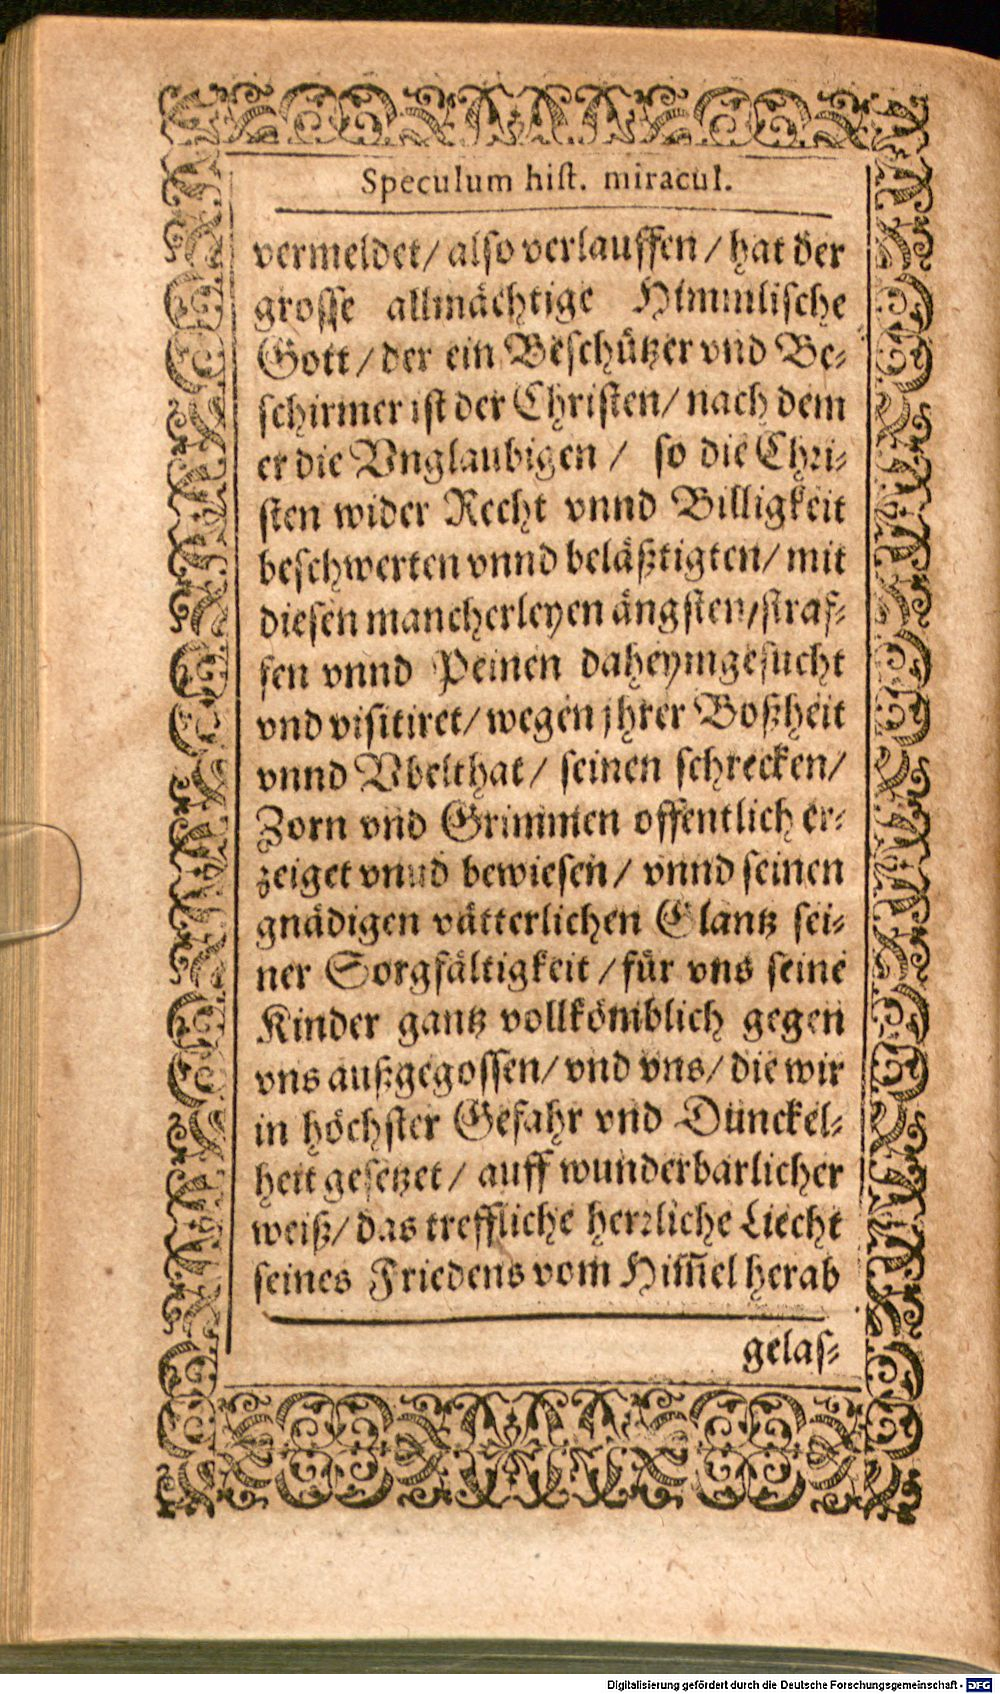 Speculum hist. miracul.
vermeldet/ also verlauffen/ hat der
grosse allmächtige Himmlische
Gott/ der ein Beschützer vnd Be⸗
schirmer ist der Christen/ nach dem
er die Vnglaubigen/ so die Chri⸗
sten wider Recht vnnd Billigkeit
beschwerten vnnd beläßtigten/ mit
diesen mancherleyen ängsten/straf⸗
fen vnnd Peinen daheymgesucht
vnd visitiret/ wegen jhrer Boßheit
vnnd Vbelthat/ seinen schrecken/
Zorn vnd Grimmen offentlich er⸗
zeiget vnnd bewiesen/ vnnd seinen
gnädigen vätterlichen Glantz sei⸗
ner Sorgfältigkeit/ für vns seine
Kinder gantz vollkömblich gegen
vns außgegossen/ vnd vns/ die wir
in höchster Gefahr vnd Dunckel⸗
heit gesetzet/ auff wunderbarlicher
weiß/ das treffliche herrliche Liecht
seines Friedens vom Him̄el herab
gelas⸗
Digitalisierung gefördert durch die Deutsche Forschungsgemeinschaft - DFG